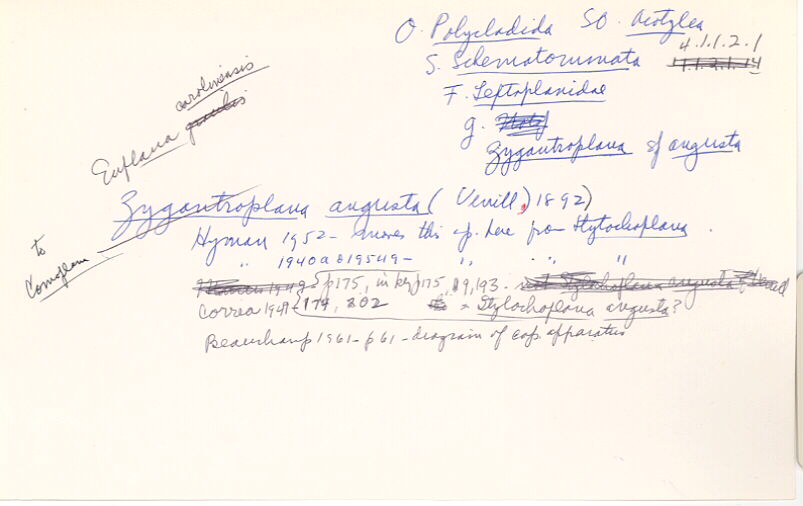 O. Polycladida SO. Acotylea
4.1.1.2.1
S. Schematommata
F. Leptoplanidae
g.
Zygantroplana sp angusta
Euplana carolinensis
Zygantroplana angusta (Verrill, 1892)
Hyman 1952 - moves this sp. here from Stylochoplana.
" 1940a 819549 - " " "
to Comoplana
p175, in key p175, 89, 193.
Correa 1949 - 179, 202 = Stylochoplana angusta?
Beauchamp 1961 - p61 - diagram of cop. apparatus